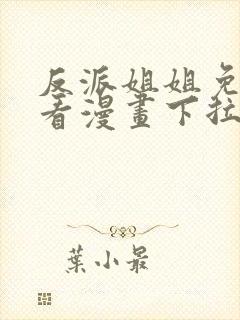 反派姐姐免
看漫畫下拉
葉小最